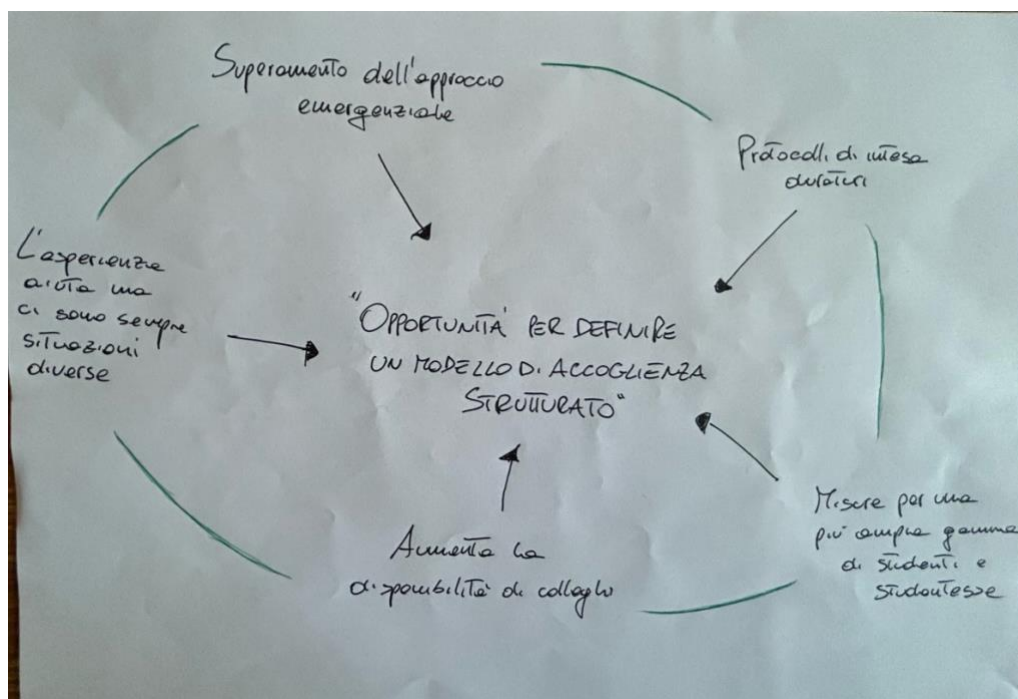 Superamento dell'approccio
emergenziale
Protocolli di intesa
duraturi
L'esperienza
aiuta ma
ci sono sempre
situazioni
diverse
"OPPORTUNITÀ PER DEFINIRE
UN MODELLO DI ACCOGLIENZA
STRUTTURATO"
Misure per una
più ampia gamma
di studenti e
studentesse
Aumenta la
disponibilità di colleghi